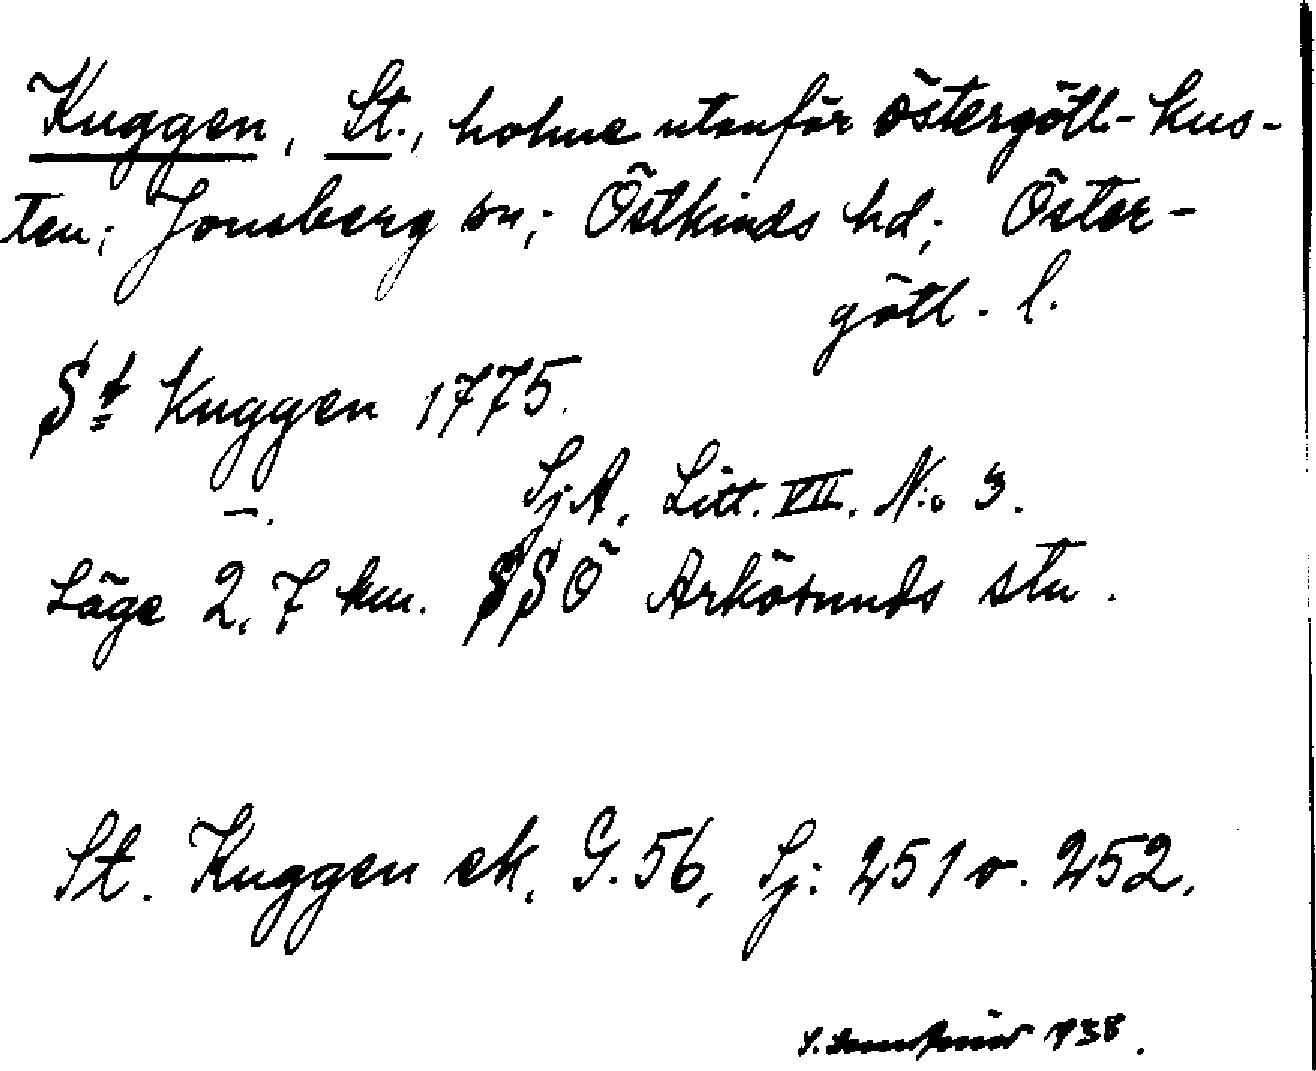 Kuggen, St., holme utanför östergötl. kus-
ten; Jonsberg sn; Östkinds hd; Öster-
götl. l.
St Kuggen 1775.
—. SjA. Litt. VII. N:o 3.
Läge 2,7 km. SSÖ Arkösunds stn.
St. Kuggen ek. G. 56, Sj: 251 o. 252.
1938.